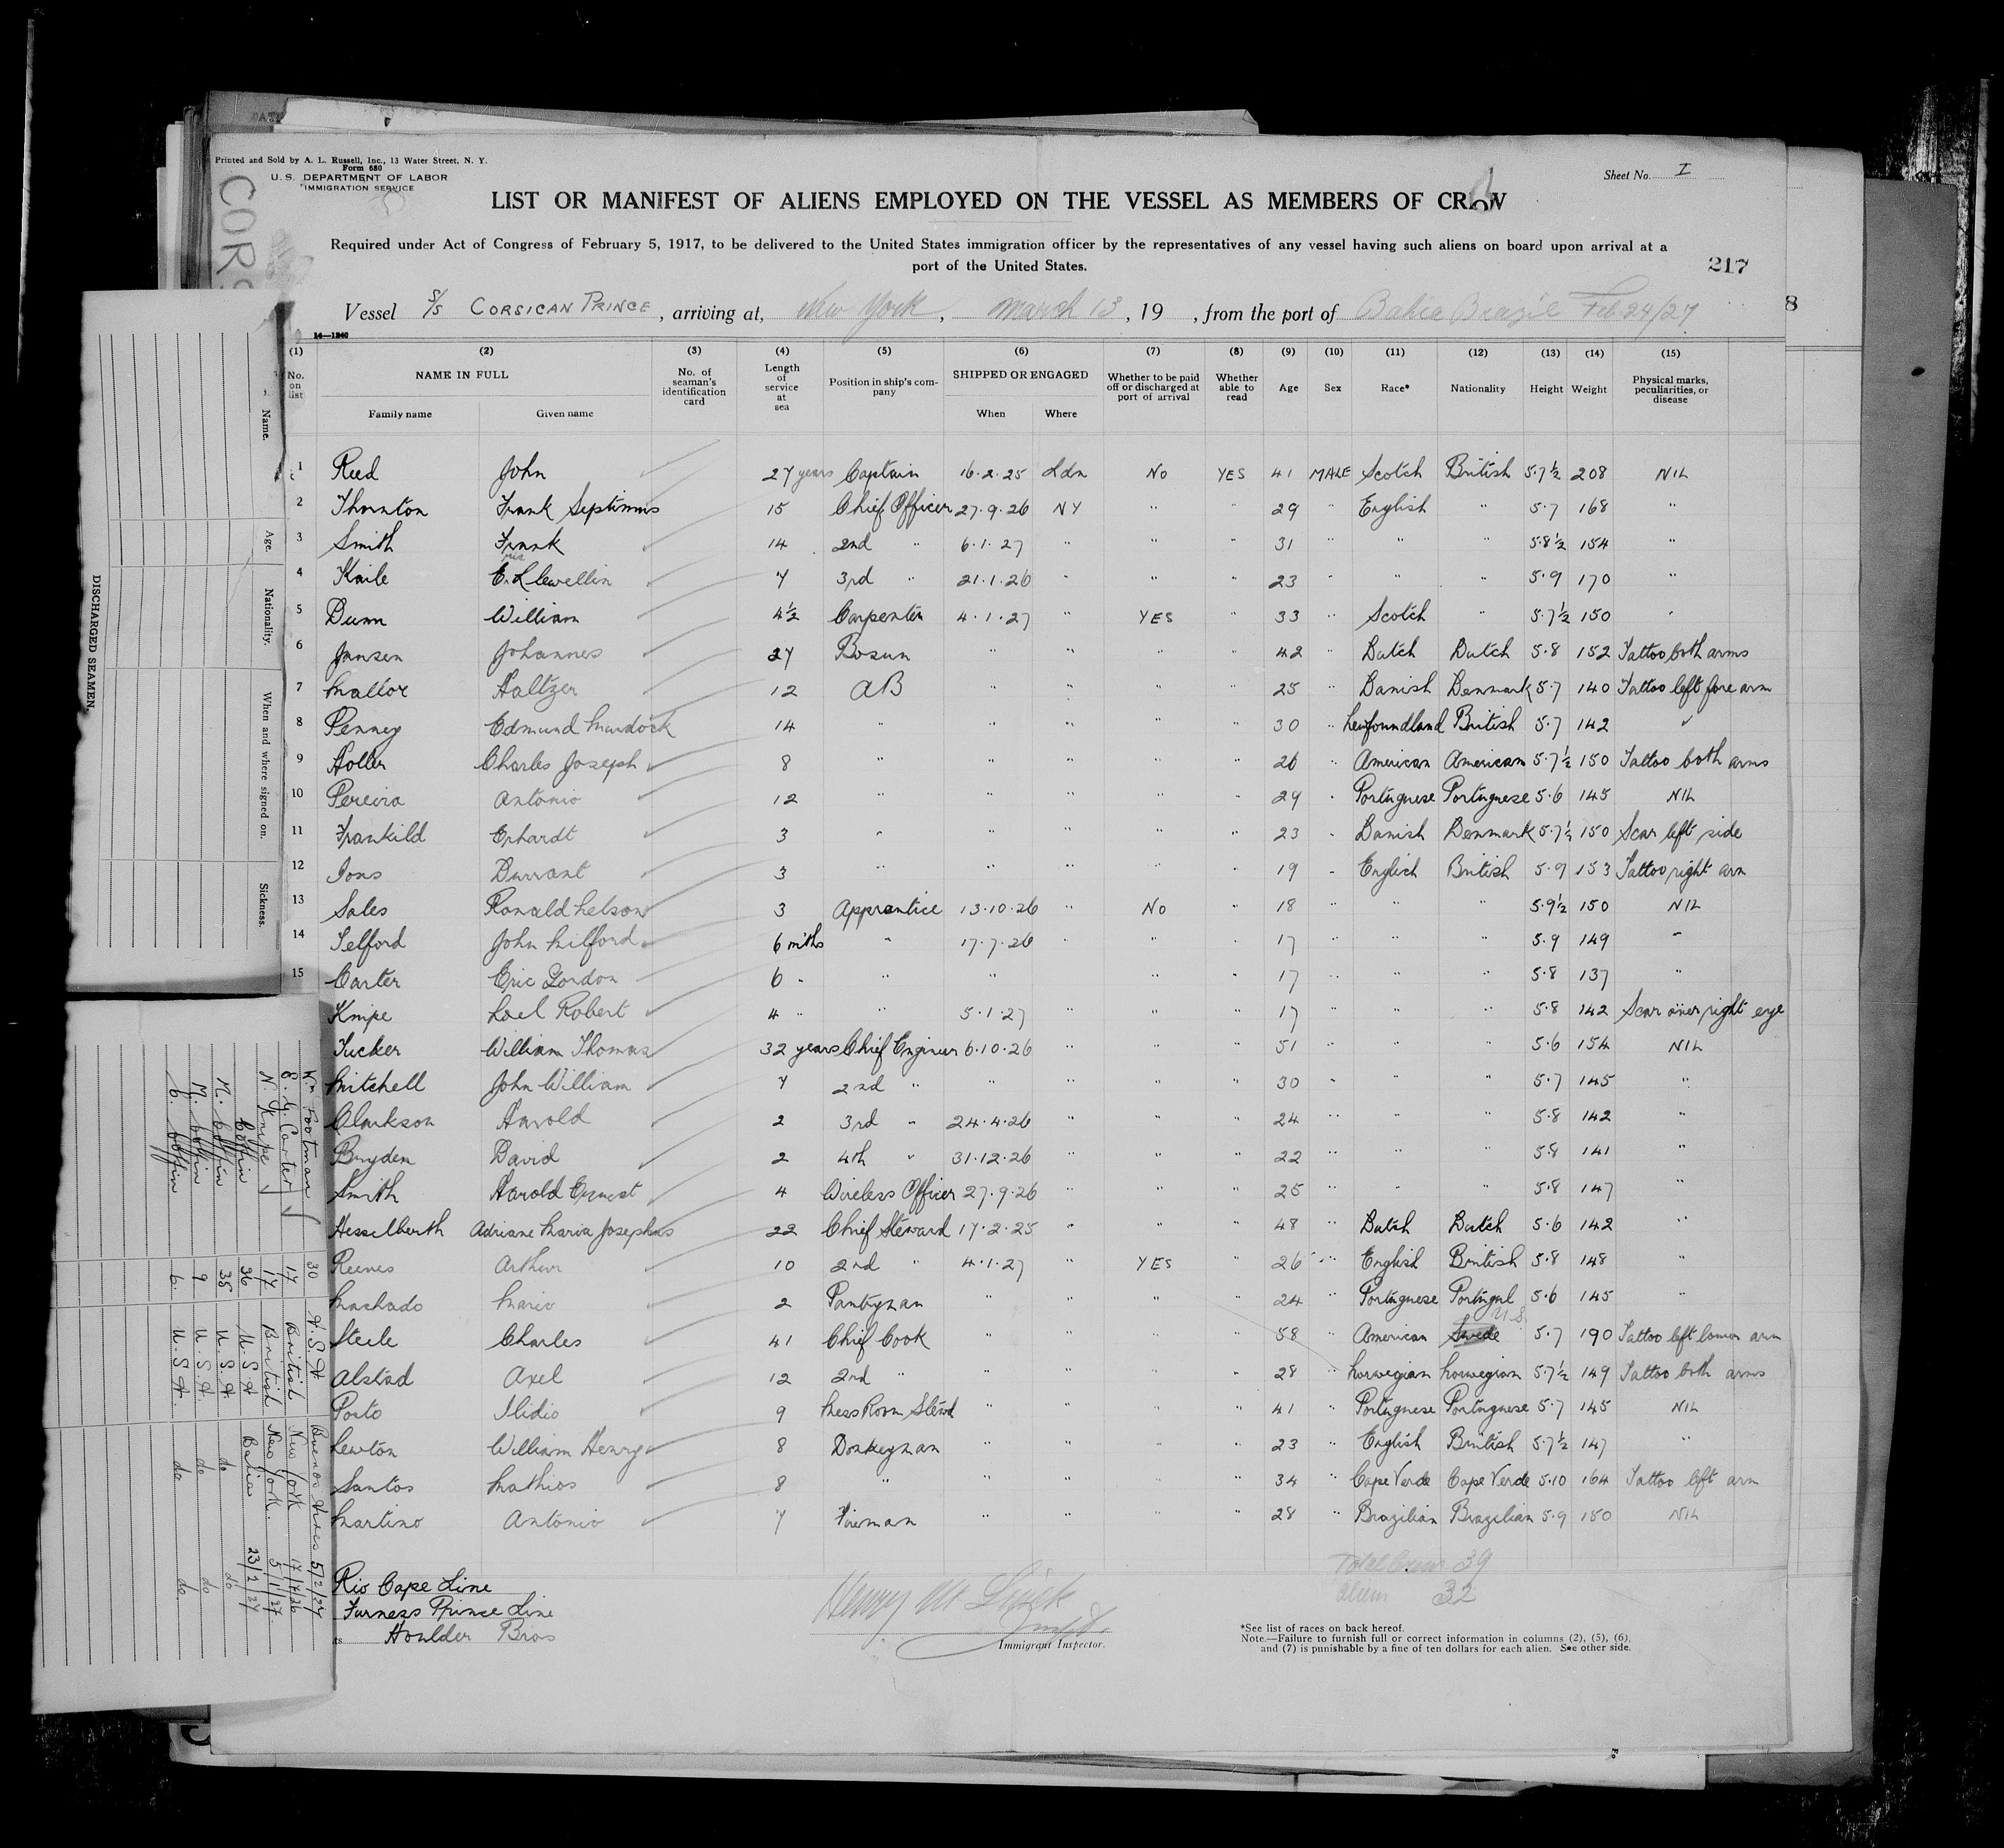 Printed and Sold by A. L. Russell, Inc., 13 Water Street, N. Y.
Form 680
U. S. DEPARTMENT OF LABOR
IMMIGRATION SERVICE
Sheet No. I
LIST OR MANIFEST OF ALIENS EMPLOYED ON THE VESSEL AS MEMBERS OF CREW
Required under Act of Congress of February 5, 1917, to be delivered to the United States immigration officer by the representatives of any vessel having such aliens on board upon arrival at a
port of the United States.
217
Vessel S/S CORSICAN PRINCE, arriving at, New York, March 13, 19 , from the port of Bahia Brazil Feb 24/27
14—1240
(1) (2) (3) (4) (5) (6) (7) (8) (9) (10) (11) (12) (13) (14) (15)
No. on list NAME IN FULL Family name Given name No. of seaman's identification card Length of service at sea Position in ship's company SHIPPED OR ENGAGED When Where Whether to be paid off or discharged at port of arrival Whether able to read Age Sex Race* Nationality Height Weight Physical marks, peculiarities, or disease
1 Reed John 27 years Captain 16.2.25 Ldn No YES 41 MALE Scotch British 5.7½ 208 NIL
2 Thornton Frank Septimus 15 Chief Officer 27.9.26 NY " " 29 " English " 5.7 168 "
3 Smith Frank 14 2nd " 6.1.27 " " " 31 " " " 5.8½ 154 "
4 Kaile E. Llewellin 7 3rd " 21.1.26 " " " 23 " " " 5.9 170 "
5 Dunn William 4½ Carpenter 4.1.27 " YES " 33 " Scotch " 5.7½ 150 "
6 Jansen Johannes 27 Bosun " " " " 42 " Dutch Dutch 5.8 152 Tattoo both arms
7 Haltzer 12 AB " " " " 25 " Danish Denmark 5.7 140 Tattoo left fore arm
8 Penney Edmund Murdock 14 " " " " " 30 " Newfoundland British 5.7 142
9 Holler Charles Joseph 8 " " " " " 26 " American American 5.7½ 150 Tattoo both arms
10 Pereira Antonio 12 " " " " " 29 " Portuguese Portuguese 5.6 145 NIL
11 Frankild Erhardt 3 " " " " " 23 " Danish Denmark 5.7½ 150 Scar left side
12 Ions Durrant 3 " " " " " 19 " English British 5.9 153 Tattoo right arm
13 Sales Ronald Nelson 3 Apprentice 13.10.26 " No " 18 " " " 5.9½ 150 NIL
14 Telford John Milford 6 mths " 17.7.26 " " " 17 " " " 5.9 149 "
15 Carter Eric Gordon 6 " " " " " 17 " " " 5.8 137 "
Knipe Noel Robert 4 " " 5.1.27 " " " 17 " " " 5.8 142 Scar over right eye
Tucker William Thomas 32 years Chief Engineer 6.10.26 " " " 51 " " " 5.6 154 NIL
Mitchell John William 7 2nd " " " " " 30 " " " 5.7 145 "
Clarkson Harold 2 3rd " 24.4.26 " " " 24 " " " 5.8 142 "
Bryden David 2 4th " 31.12.26 " " " 22 " " " 5.8 141 "
Smith Harold Ernest 4 Wireless Officer 27.9.26 " " " 25 " " " 5.8 147 "
Hesselberth Adriane Maria Josephus 22 Chief Steward 17.2.25 " " " 48 " Dutch Dutch 5.6 142 "
Reeves Arthur 10 2nd " 4.1.27 " YES " 26 " English British 5.8 148 "
Machado Mario 2 Pantryman " " " " 24 " Portuguese Portugal 5.6 145 "
Steele Charles 41 Chief Cook " " " " 58 " American Swede U.S. 5.7 190 Tattoo left lower arm
Alstad Axel 12 2nd " " " " " 28 " Norwegian Norwegian 5.7½ 149 Tattoo both arms
Porto Ilidio 9 Mess Room Stewd " " " " 41 " Portuguese Portuguese 5.7 145 NIL
Newton William Henry 8 Donkeyman " " " " 23 " English British 5.7½ 147 "
Santos Mathios 8 " " " " " 34 " Cape Verde Cape Verde 5.10 164 Tattoo left arm
Martino Antonio 7 Fireman " " " " 28 " Brazilian Brazilian 5.9 150 NIL
Rio Cape Line
Furness Prince Line
Houlder Bros
Total Crew 39
Alien 32
Immigrant Inspector.
*See list of races on back hereof.
Note.—Failure to furnish full or correct information in columns (2), (5), (6),
and (7) is punishable by a fine of ten dollars for each alien. See other side.
DISCHARGED SEAMEN.
Name. Age. Nationality. When and where signed on. Sickness.
Wm Footman 30 U.S.A. Buenos Aires 5/2/27
E. G. Carter 17 British New York 17/7/26
N. Knipe 17 British New York. 5/1/27
Coffin 36 U.S.A. Bahia 23/2/27
M. Coffin 35 U.S.A. do do
M. Coffin 9 U.S.A. do do
C. Coffin 6. U.S.A. do do.